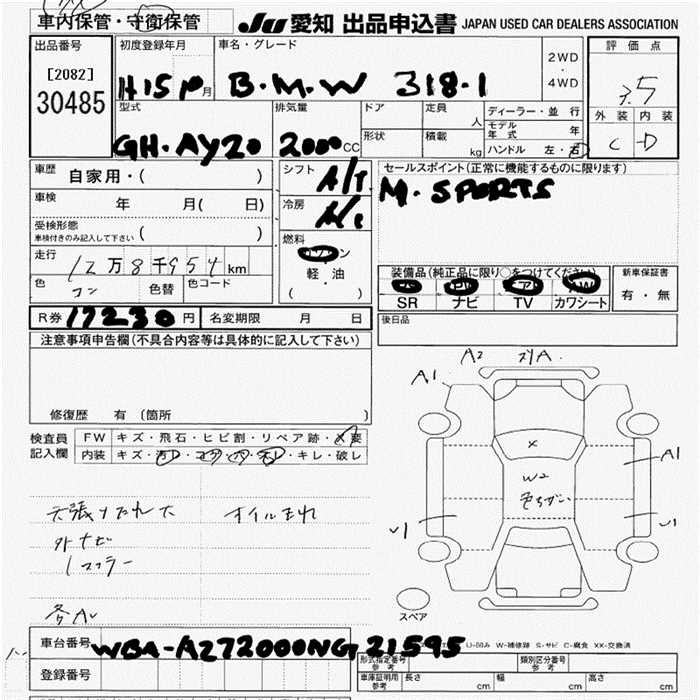 車内保管・守衛保管
JU 愛知 出品申込書 JAPAN USED CAR DEALERS ASSOCIATION
出品番号
[2082]
30485
初度登録年月
H15 月
車名・グレード
B.M.W 318.i
2WD
・
4WD
評価点
3.5
外装 内装
C D
型式
GH・AY20
排気量
2000 CC
ドア
形状
定員
人
積載
kg
ディーラー・並行
モデル
年式 年
ハンドル 左・右
車歴
自家用・( )
車検
年 月( 日)
受検形態
車検付きのみ記入して下さい ( )
走行
12万8千954km
色
コン
色替
色コード
シフト
A/T
冷房
A/C
燃料
ガソリン
・
軽・油
( )
セールスポイント(正常に機能するものに限ります)
M.SPORTS
装備品(純正品に限り○をつけてください)
PS PW エアB AW
SR ナビ TV カワシート
新車保証書
有・無
R券 17230 円
名変期限 月 日
後日品
注意事項申告欄(不具合内容等は具体的に記入して下さい)
修復歴 有 (箇所 )
検査員
記入欄
FW キズ・飛石・ヒビ割・リペア跡・X要
内装 キズ・汚レ・コゲ・穴・スレ・キレ・破レ
天張りたれ大 オイルもれ
外ナビ
各A1
A1
A2
A1
X
W2
色ちがい
U1
U1
スペア
車台番号
WBA-AZ72000NG21595
U-凹み W-補修跡 S-サビ C-腐食 XX-交換済
登録番号
型式指定番号
参考
類別区分番号
参考
車庫証明用
参考
長さ cm 幅 cm 高さ cm